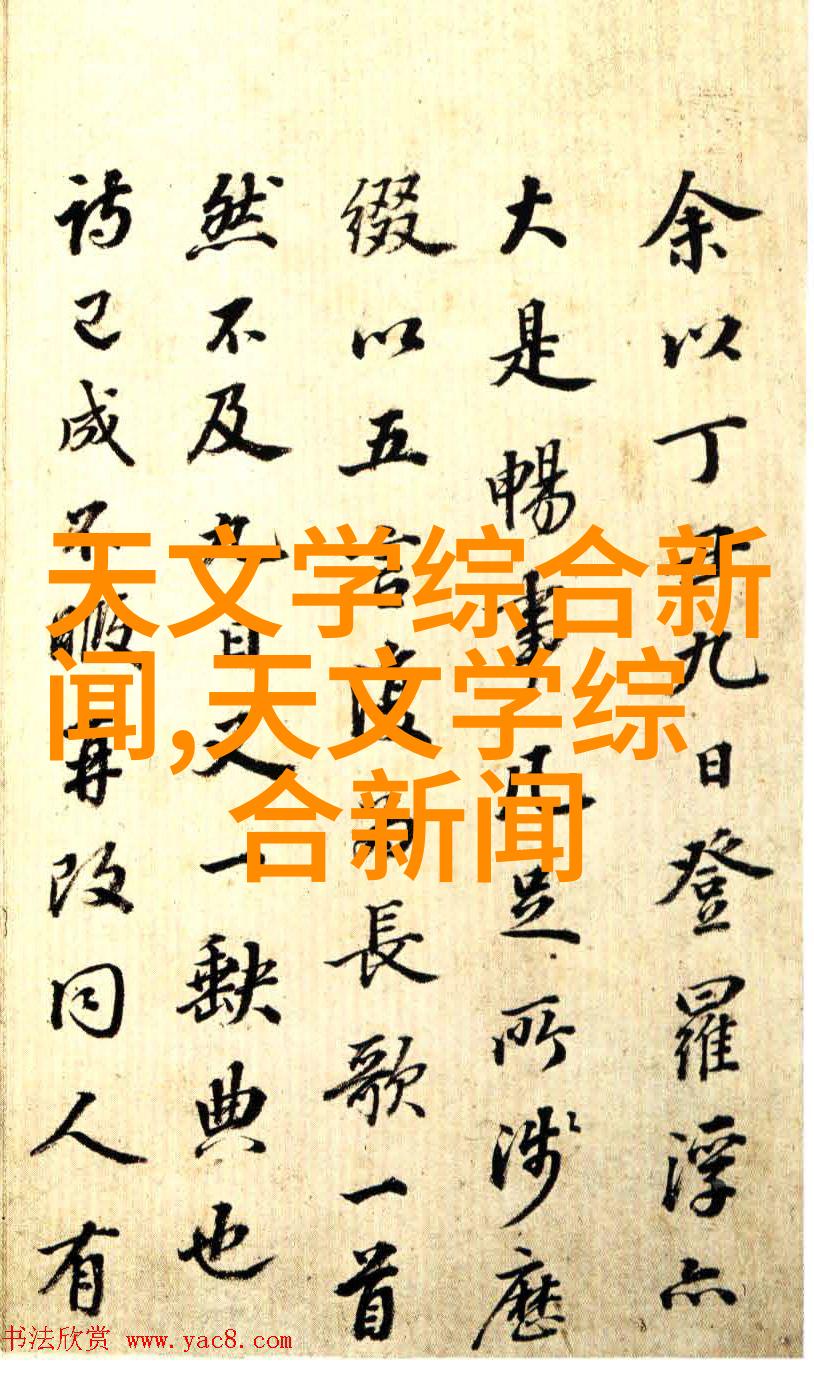 余以丁九日登羅浮亦
大是暢事足所涉歷
綴以五言復為長歌一首
然不及九日一缺典也
詩已成不暇再改同人有
天文学综合新
闻,天文学综
合新闻
书法欣赏 www.yac8.com